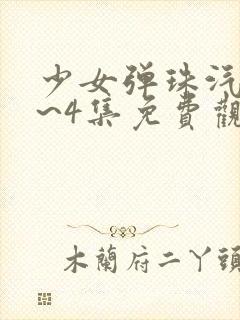 少女弹珠汽
~4集免費觀
木蘭府二丫頭